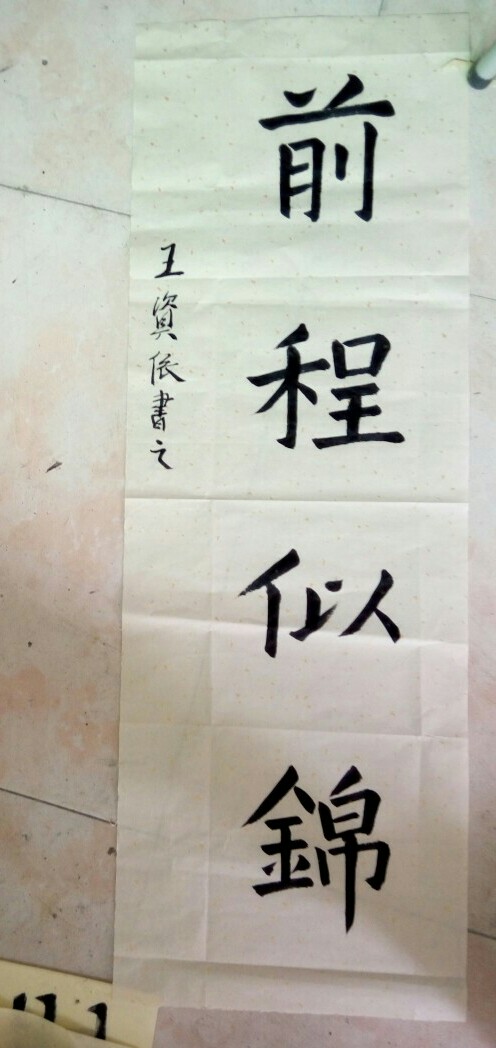 前程似錦
王資依書之